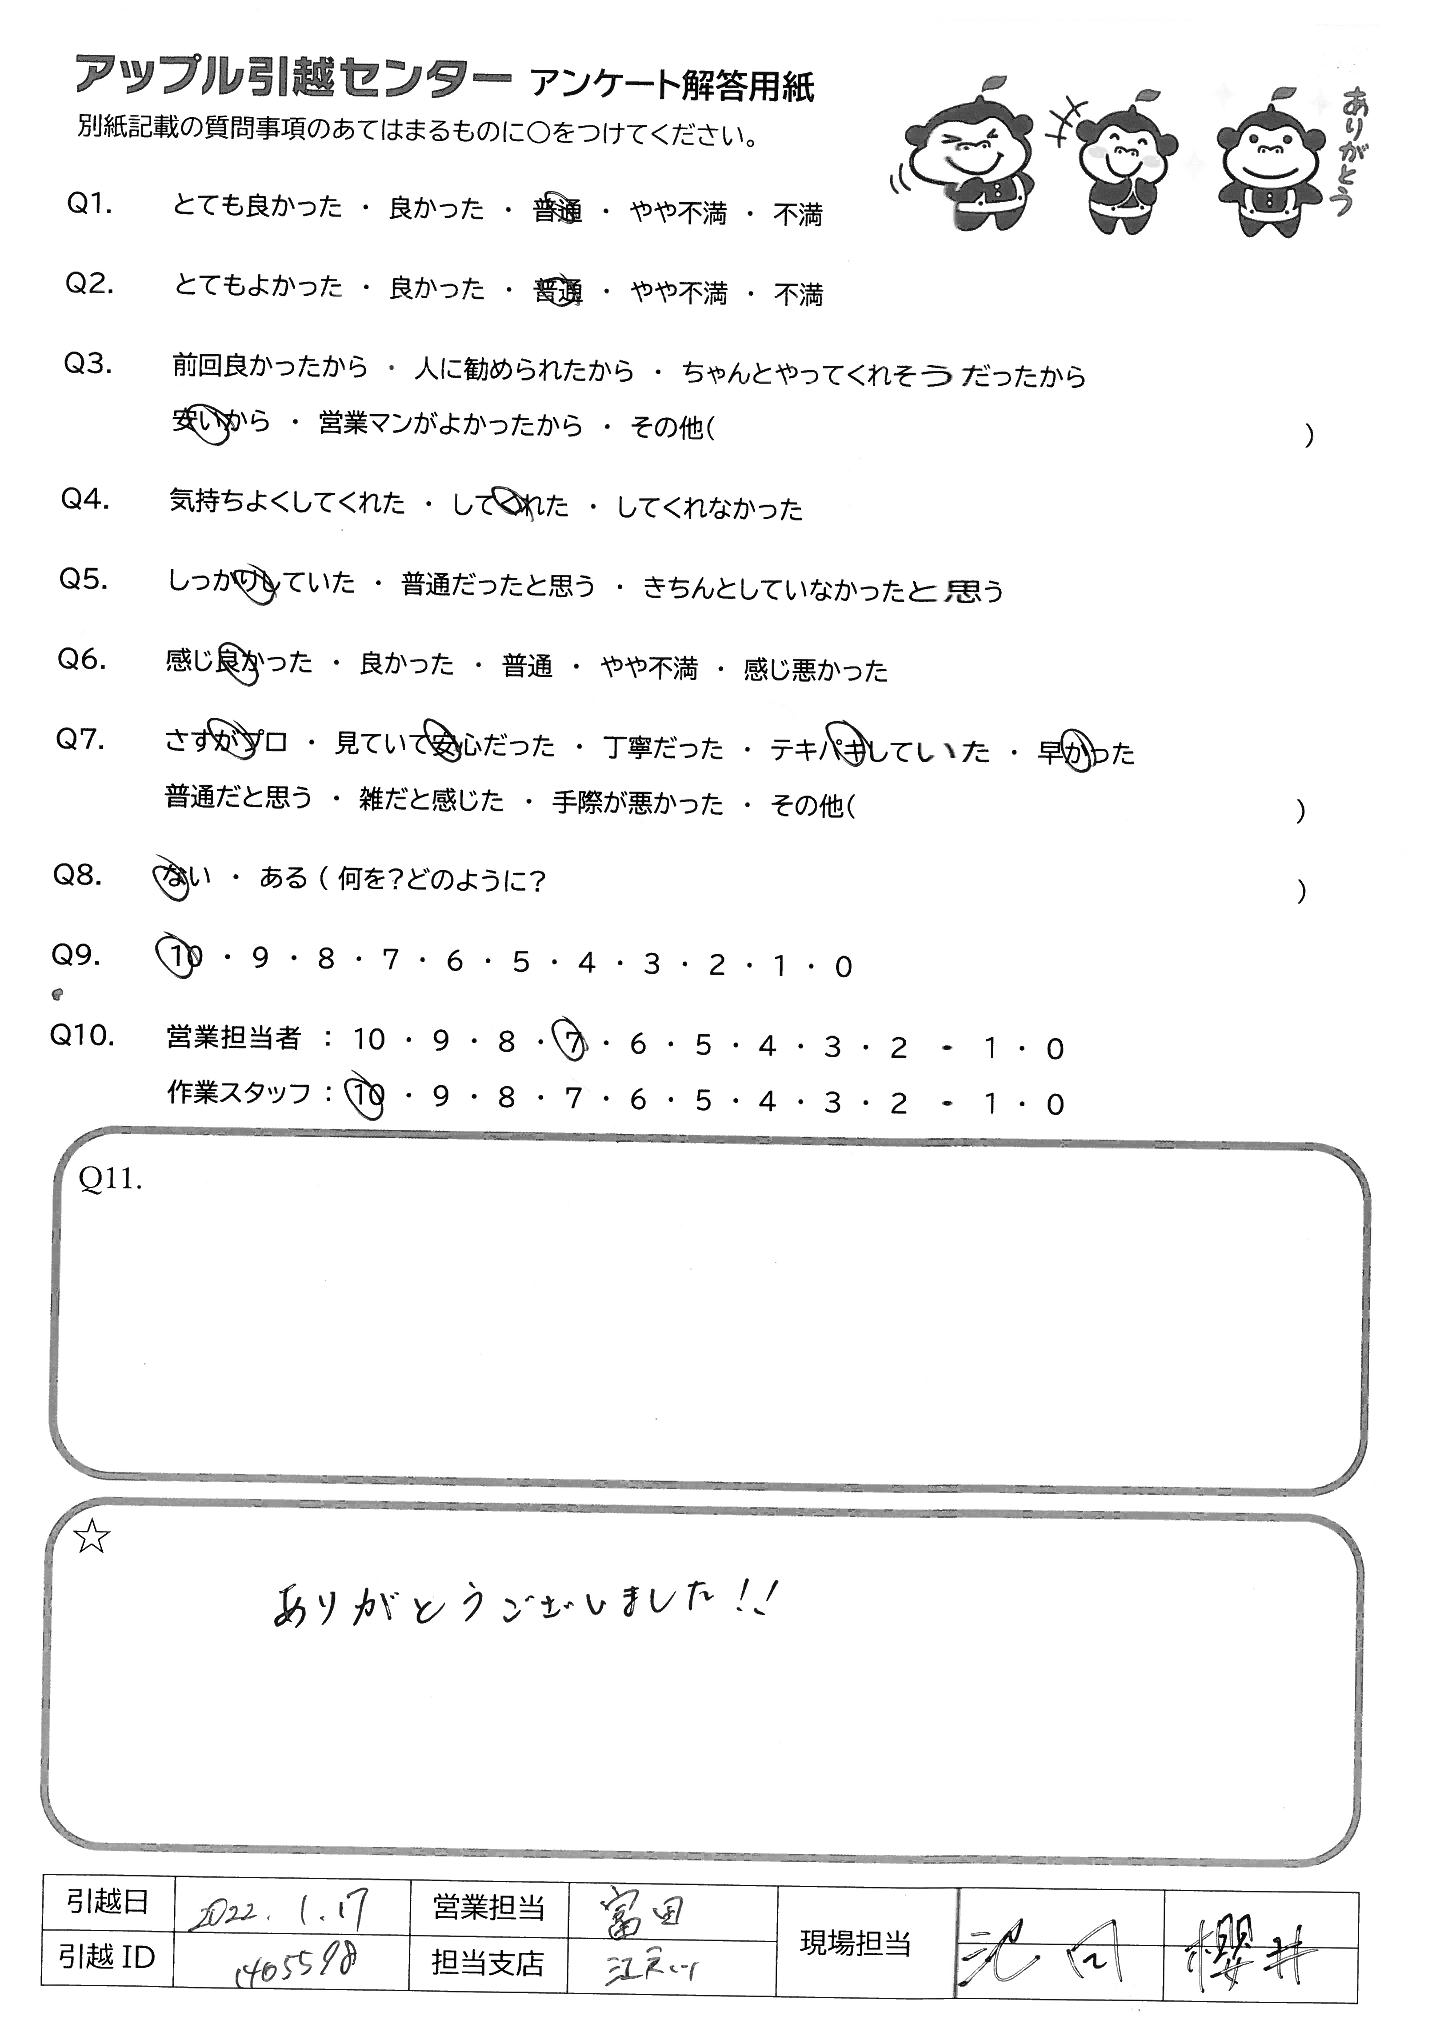 アップル引越センター アンケート解答用紙
別紙記載の質問事項のあてはまるものに○をつけてください。
ありがとう
Q1. とても良かった ・ 良かった ・ 普通 ・ やや不満 ・ 不満
Q2. とてもよかった ・ 良かった ・ 普通 ・ やや不満 ・ 不満
Q3. 前回良かったから ・ 人に勧められたから ・ ちゃんとやってくれそうだったから
安いから ・ 営業マンがよかったから ・ その他( )
Q4. 気持ちよくしてくれた ・ してくれた ・ してくれなかった
Q5. しっかりしていた ・ 普通だったと思う ・ きちんとしていなかったと思う
Q6. 感じ良かった ・ 良かった ・ 普通 ・ やや不満 ・ 感じ悪かった
Q7. さすがプロ ・ 見ていて安心だった ・ 丁寧だった ・ テキパキしていた ・ 早かった
普通だと思う ・ 雑だと感じた ・ 手際が悪かった ・ その他( )
Q8. ない ・ ある ( 何を？どのように？ )
Q9. 10 ・ 9 ・ 8 ・ 7 ・ 6 ・ 5 ・ 4 ・ 3 ・ 2 ・ 1 ・ 0
Q10. 営業担当者 ： 10 ・ 9 ・ 8 ・ 7 ・ 6 ・ 5 ・ 4 ・ 3 ・ 2 ・ 1 ・ 0
作業スタッフ： 10 ・ 9 ・ 8 ・ 7 ・ 6 ・ 5 ・ 4 ・ 3 ・ 2 ・ 1 ・ 0
Q11.
☆
ありがとうございました!!
引越日 2022.1.17 営業担当 富田 現場担当 櫻井
引越 ID 1405598 担当支店 江戸川